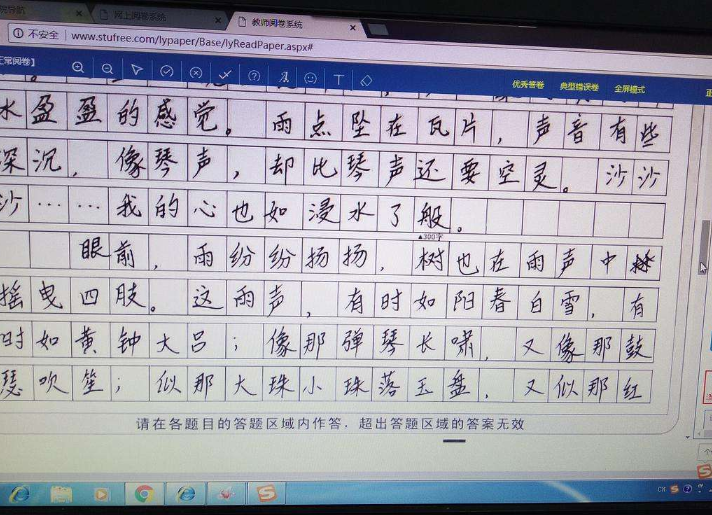 网上阅卷系统
教师阅卷系统
不安全 www.stufree.com/lypaper/Base/lyReadPaper.aspx#
正常阅卷】
优秀答卷 典型错误卷 全屏模式
水盈盈的感觉。雨点坠在瓦片，声音有些
深沉，像琴声，却比琴声还要空灵。沙沙
沙……我的心也如浸水了般。
▲300字
眼前，雨纷纷扬扬，树也在雨声中
摇曳四肢。这雨声，有时如阳春白雪，有
时如黄钟大吕；像那弹琴长啸，又像那鼓
瑟吹笙；似那大珠小珠落玉盘，又似那红
请在各题目的答题区域内作答，超出答题区域的答案无效
CH